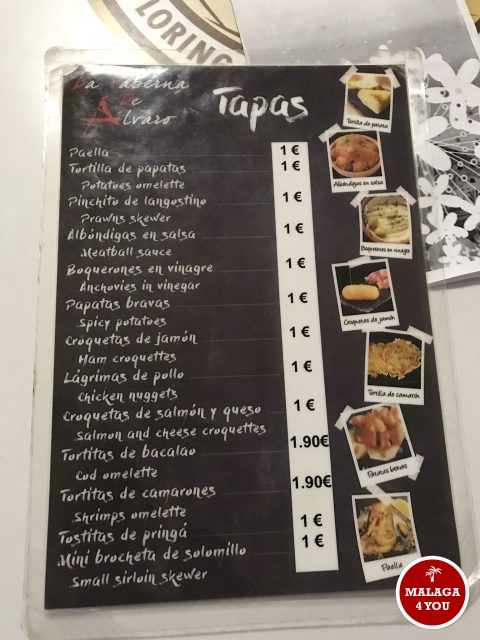 LORING
La Taberna
De
Alvaro
Tapas
Paella 1 €
Tortilla de papatas 1 €
Potatoes omelette
Pinchito de langostino 1 €
Prawns skewer
Albóndigas en salsa 1 €
Meatball sauce
Boquerones en vinagre 1 €
Anchovies in vinegar
Papatas bravas 1 €
Spicy potatoes
Croquetas de jamón 1 €
Ham croquettes
Lágrimas de pollo 1 €
Chicken nuggets
Croquetas de salmón y queso 1 €
Salmon and cheese croquettes
Tortitas de bacalao 1.90€
Cod omelette
Tortitas de camarones 1.90€
Shrimps omelette
Tostitas de pringá 1 €
Mini brocheta de solomillo 1 €
Small sirloin skewer
Tortilla de patata
Albóndigas en salsa
Boquerones en vinagre
Croquetas de jamón
Tortilla de camarón
Patatas bravas
Paella
MALAGA
4 YOU